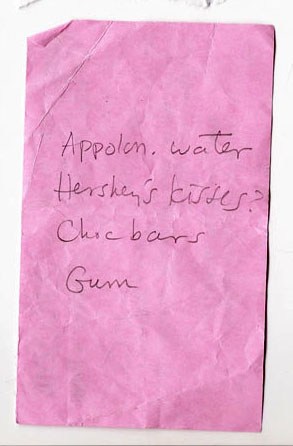 Appoln. water
Hershey's kisses?
Choc bars
Gum